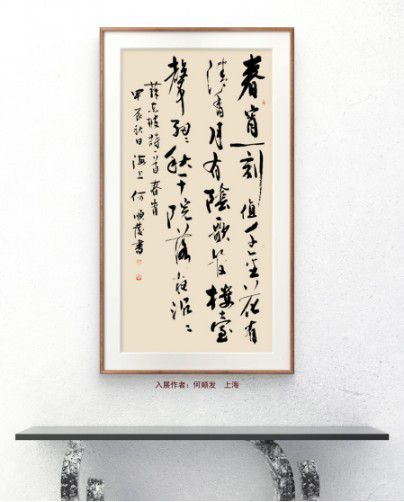 春宵一刻值千金花有
清香月有陰歌管樓臺
聲細秋千院落夜沉〻
蘇東坡詩一首春宵
甲辰秋日海上何順發書
入展作者：何顺发 上海